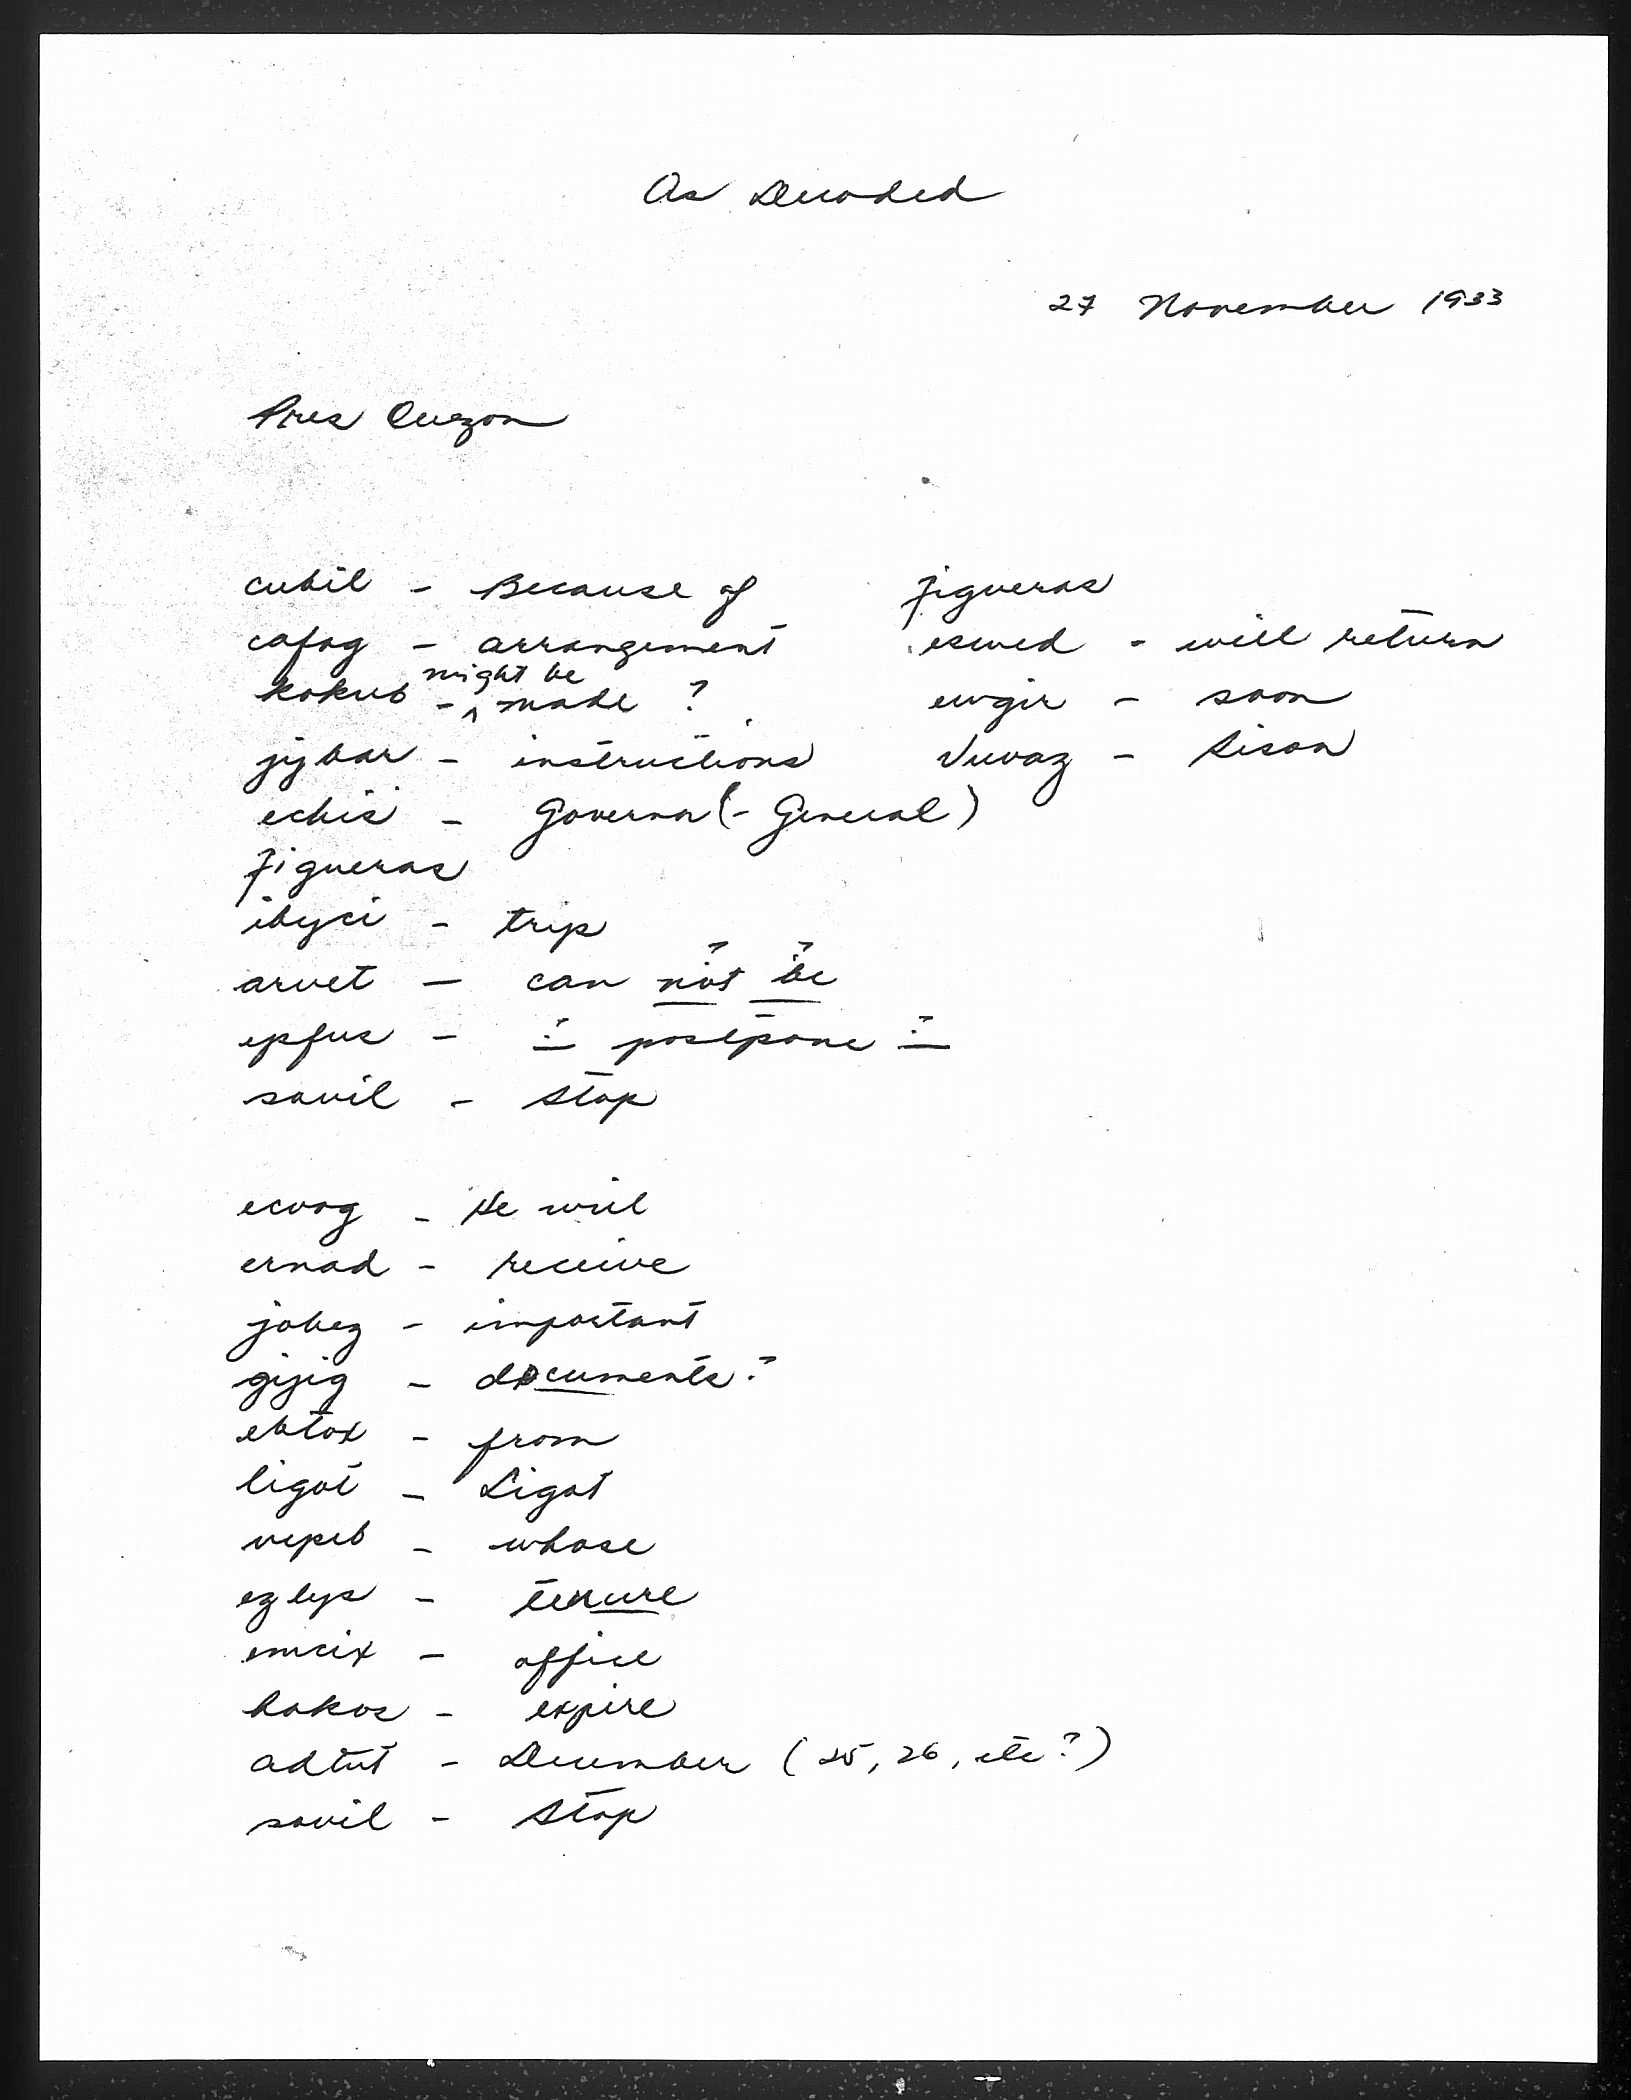 As Decoded
27 November 1933
Pres Quezon
cubil - Because of
cafog - arrangement
kokub - might be made ?
jybar - instructions
echis - Governor (- General)
Figueras
ibyci - trip
arvet - can not be
epfus - postpone
sovil - stop
ecvog - He will
ernad - receive
jobez - important
gijig - documents?
ebtox - from
ligot - Ligot
vepeb - whose
ezlys - tenure
emcix - office
hokos - expire
adtut - December (25, 26, etc?)
sovil - stop
Figueras
eswed - will return
ewgir - soon
Vuvaz - Sison